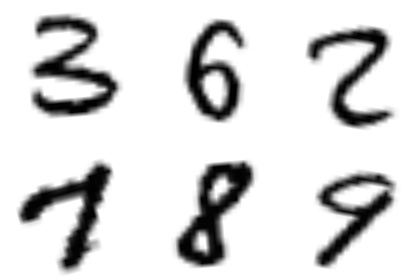 3 6 2
7 8 9